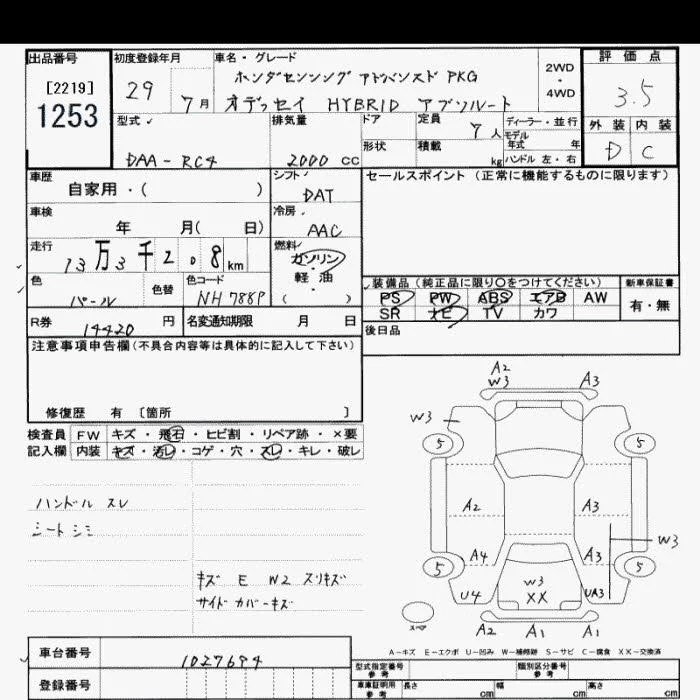 出品番号 初度登録年月 車名・グレード 評価点
[2219] ホンダセンシング アドバンスド PKG 2WD・4WD
1253 29 7月 オデッセイ HYBRID アブソルート 3.5
型式 排気量 ドア 定員 7人 ディーラー・並行 外装 内装
モデル年式 年
DAA-RC4 2000cc 形状 積載 kg ハンドル 左・右 D C
車歴 シフト セールスポイント (正常に機能するものに限ります)
自家用・( ) DAT
車検 冷房
年 月( 日) AAC
走行 燃料
13万3千208km ガソリン・軽油
色 色替 色コード ( ) 装備品 (純正品に限り○をつけてください) 新車保証書
パール NH788P PS PW ABS エアB AW 有・無
R券 14420円 名変通知期限 月 日 SR ナビ TV カワ
後日品
注意事項申告欄(不具合内容等は具体的に記入して下さい)
修復歴 有 [箇所 ]
検査員 FW キズ・飛石・ヒビ割・リペア跡・×要
記入欄 内装 キズ・汚レ・コゲ・穴・スレ・キレ・破レ
ハンドル スレ
シート シミ
キズ E W2 スリキズ
サイド カバーキズ
A2
W3 A3
W3
5 5
A2 A3
W3
A4 A3
5 5
W3
U4 XX UA3
スペア A2 A1 A1
A-キズ E-エクボ U-凹み W-補修跡 S-サビ C-腐食 XX-交換済
車台番号 1027694 型式指定番号 参考 類別区分番号 参考
登録番号 車庫証明用 参考 長さ cm 幅 cm 高さ cm